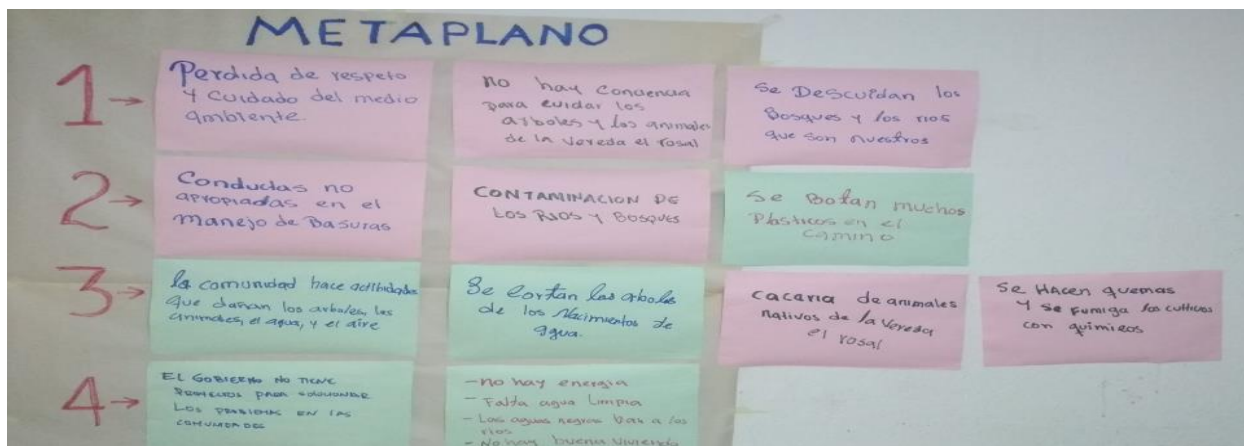 METAPLANO
1→
Perdida de respeto
Y Cuidado del medio
ambiente.
no hay Conciencia
para cuidar los
arboles y los animales
de la Vereda el rosal
Se Descuidan los
Bosques y los rios
que son nuestros
2→
Conductas no
apropiadas en el
manejo de Basuras
CONTAMINACION DE
LOS RIOS Y BOSQUES
Se Botan muchos
Plasticos en el
Camino
3→
la comunidad hace actibidades
que dañan los arboles, los
animales, el agua, y el aire
Se cortan los arboles
de los Nacimientos de
agua.
Caceria de animales
nativos de la Vereda
el rosal
Se Hacen quemas
Y se Fumiga los cultivos
con quimicos
4→
EL GOBIERNO NO TIENE
PROYECTOS PARA SOLUCIONAR
LOS PROBLEMAS EN LAS
COMUNIDADES
- no hay energia
- Falta agua Limpia
- Las aguas negras ban a los
rios
- No hay buena Vivienda